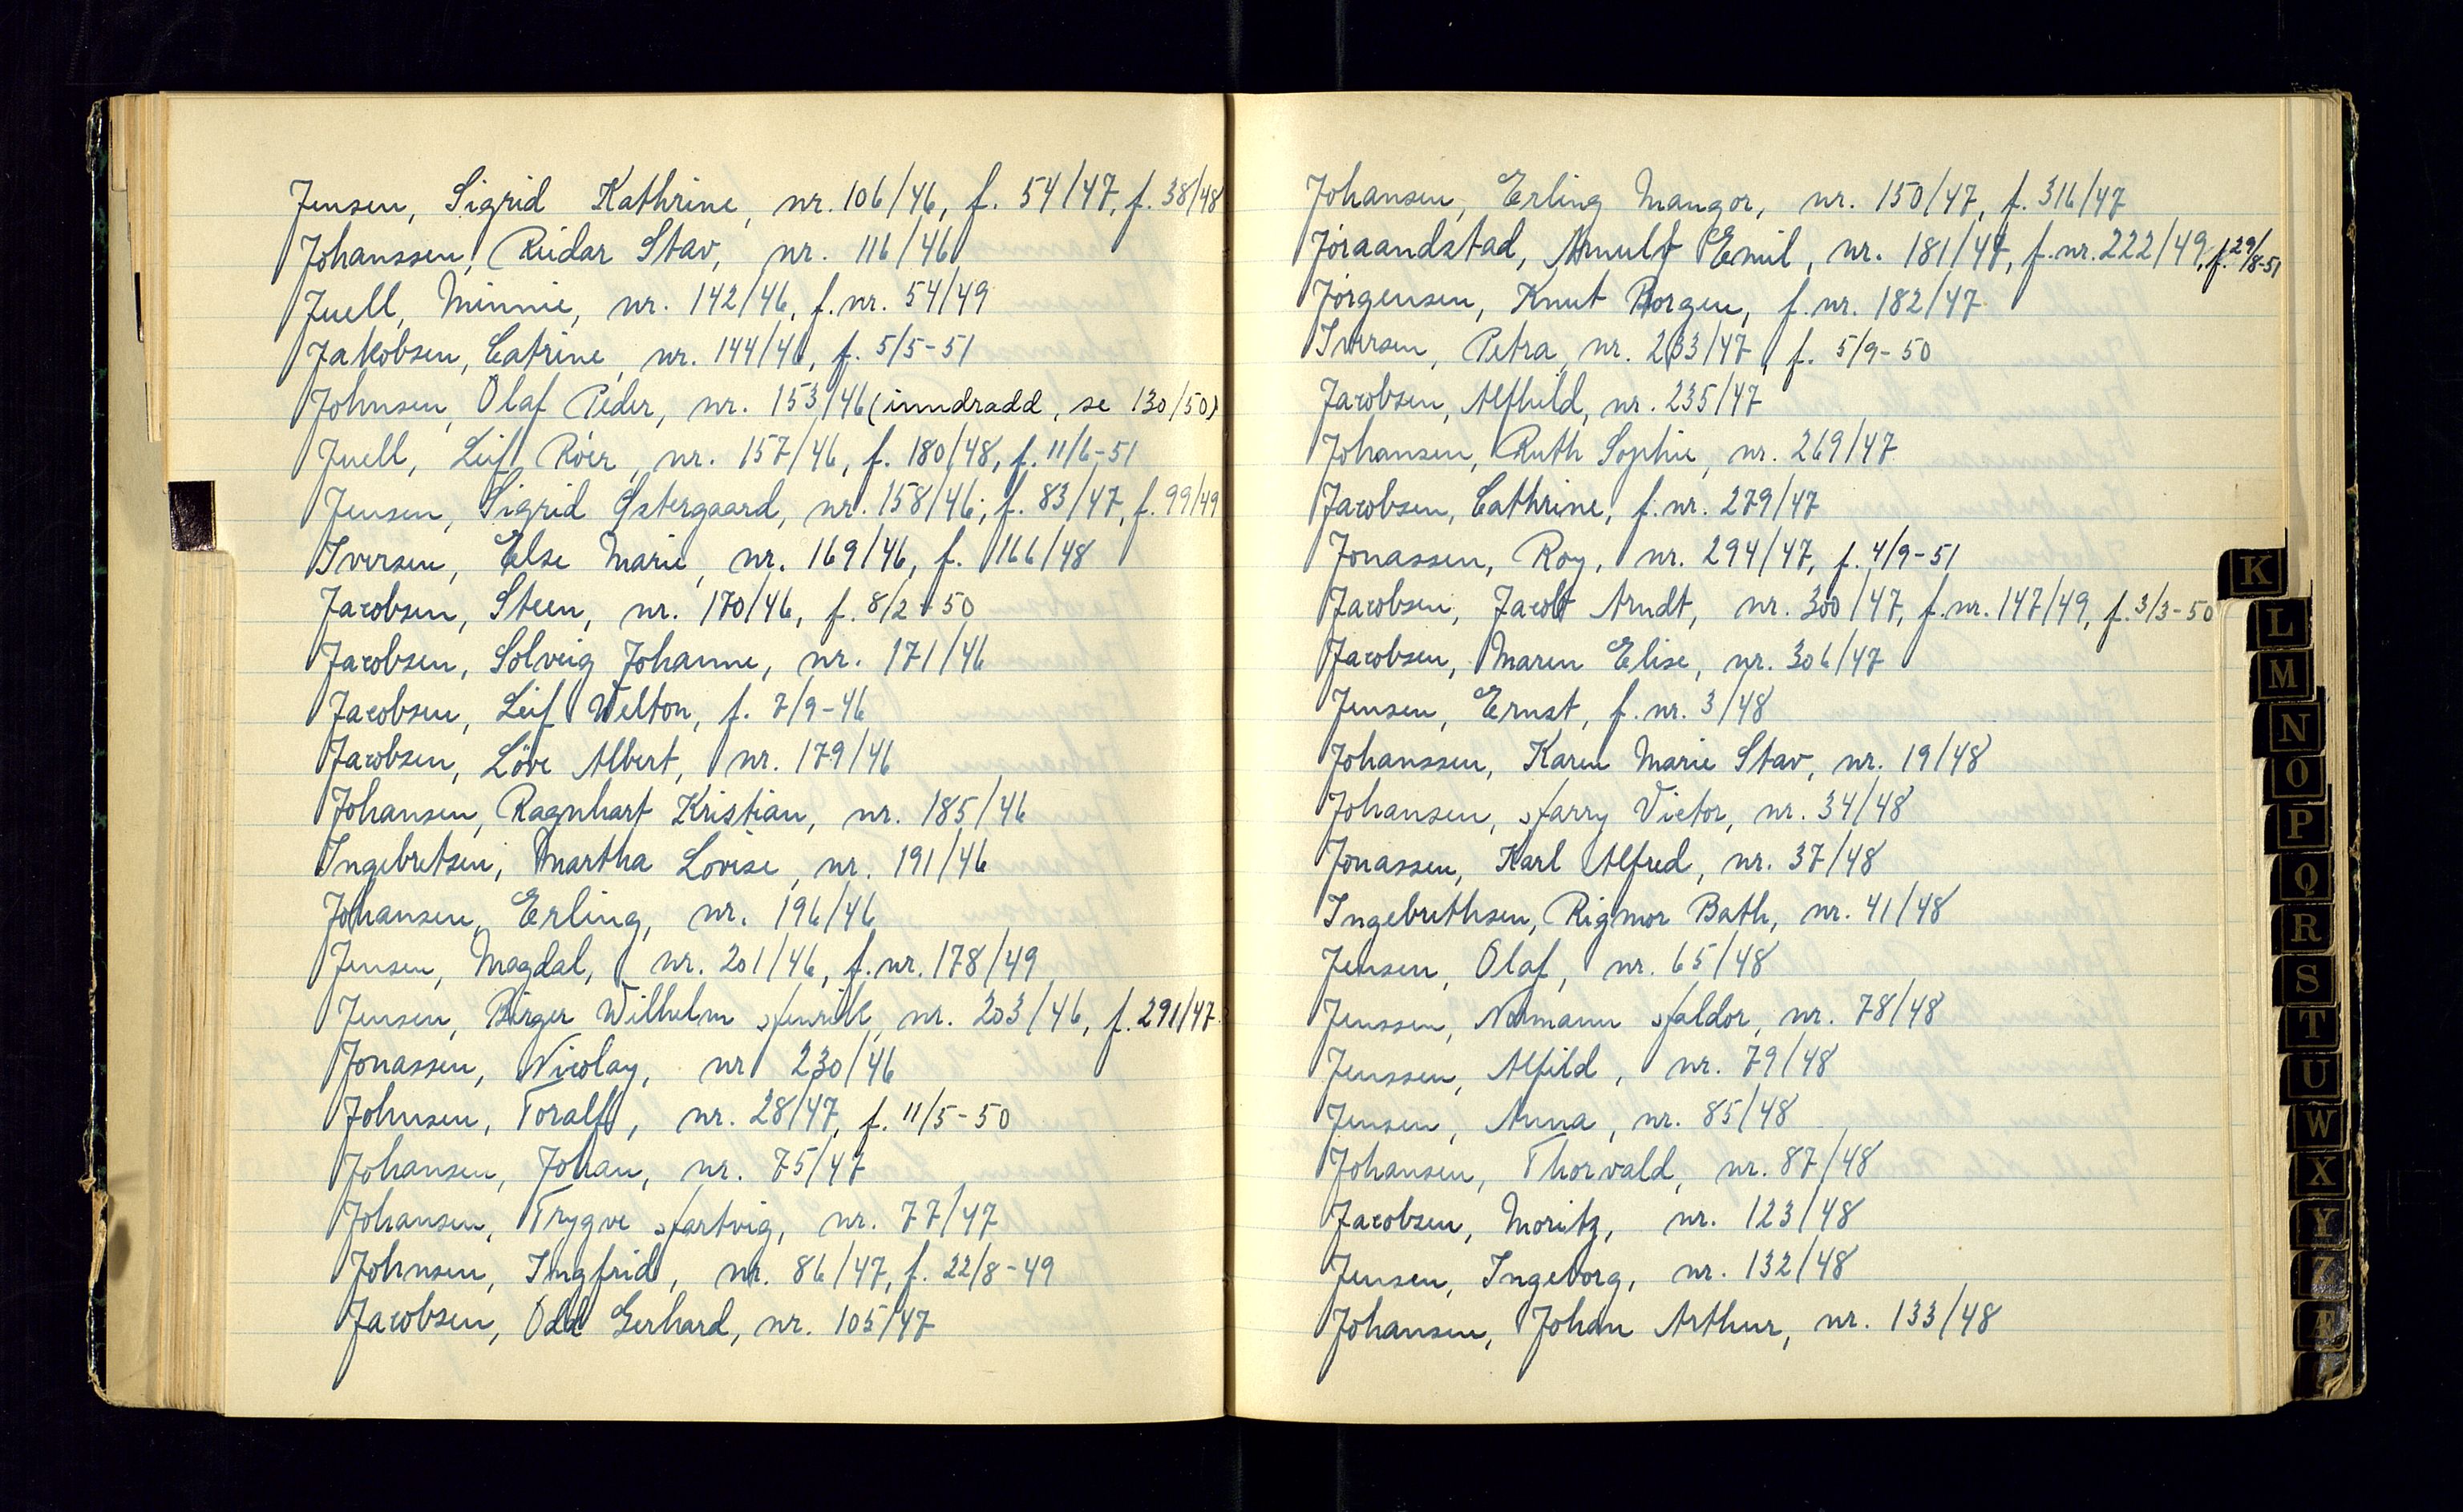 Jensen, Sigrid Kathrine, nr. 106/46, f. 54/47, f. 38/48
Johanssen, Reidar Stav, nr. 116/46
Juell, Minnie, nr. 142/46, f. nr. 54/49
Jakobsen, Catrine, nr. 144/46, f. 5/5-51
Johnsen, Olaf Peder, nr. 153/46 (inndradd, se 130/50)
Juell, Leif Róer, nr. 157/46, f. 180/48, f. 11/6-51
Jensen, Sigrid Østergaard, nr. 158/46, f. 83/47, f. 99/49
Iversen, Else Marie, nr. 169/46, f. 166/48
Jacobsen, Steen, nr. 170/46, f. 8/2-50
Jacobsen, Solveig Johanne, nr. 171/46
Jacobsen, Leif Welton, f. 7/9-46
Jacobsen, Löve Albert, nr. 179/46
Johansen, Ragnhart Kristian, nr. 185/46
Ingebretsen, Martha Lovise, nr. 191/46
Johansen, Erling, nr. 196/46
Jensen, Magdal, nr. 201/46, f. nr. 178/49
Jensen, Birger Wilhelm Henrik, nr. 203/46, f. 291/47
Jonassen, Nicolay, nr 230/46
Johnsen, Toralf, nr. 28/47, f. 11/5-50
Johansen, Johan, nr. 75/47
Johansen, Trygve Hartvig, nr. 77/47
Johnsen, Ingfrid, nr. 86/47, f. 22/8-49
Jacobsen, Odd Gerhard, nr. 105/47
Johansen, Erling Mangor, nr. 150/47, f. 316/47
Jóraandstad, Arnulf Emil, nr. 181/47, f. nr. 222/49, f. 29/8-51
Jórgensen, Knut Borgen, f. nr. 182/47
Iversen, Petra, nr. 233/47, f. 5/9-50
Jacobsen, Alfhild, nr. 235/47
Johansen, Ruth Sophie, nr. 269/47
Jacobsen, Cathrine, f. nr. 279/47
Jonassen, Roy, nr. 294/47, f. 4/9-51
Jacobsen, Jacob Arndt, nr. 300/47, f. nr. 147/49, f. 3/3-50
Jacobsen, Maren Elise, nr. 306/47
Jensen, Ernst, f. nr. 3/48
Johanssen, Karen Marie Stav, nr. 19/48
Johansen, Harry Victor, nr. 34/48
Jonassen, Karl Alfred, nr. 37/48
Ingebrethsen, Rigmor Bath, nr. 41/48
Jensen, Olaf, nr. 65/48
Jenssen, Normann Haldor, nr. 78/48
Jenssen, Alfild, nr. 79/48
Jensen, Anna, nr. 85/48
Johansen, Thorvald, nr. 87/48
Jacobsen, Moritz, nr. 123/48
Jensen, Ingeborg, nr. 132/48
Johansen, Johan Arthur, nr. 133/48
K
L
M
N
O
P
Q
R
S
T
U
W
X
Y
Z
Æ